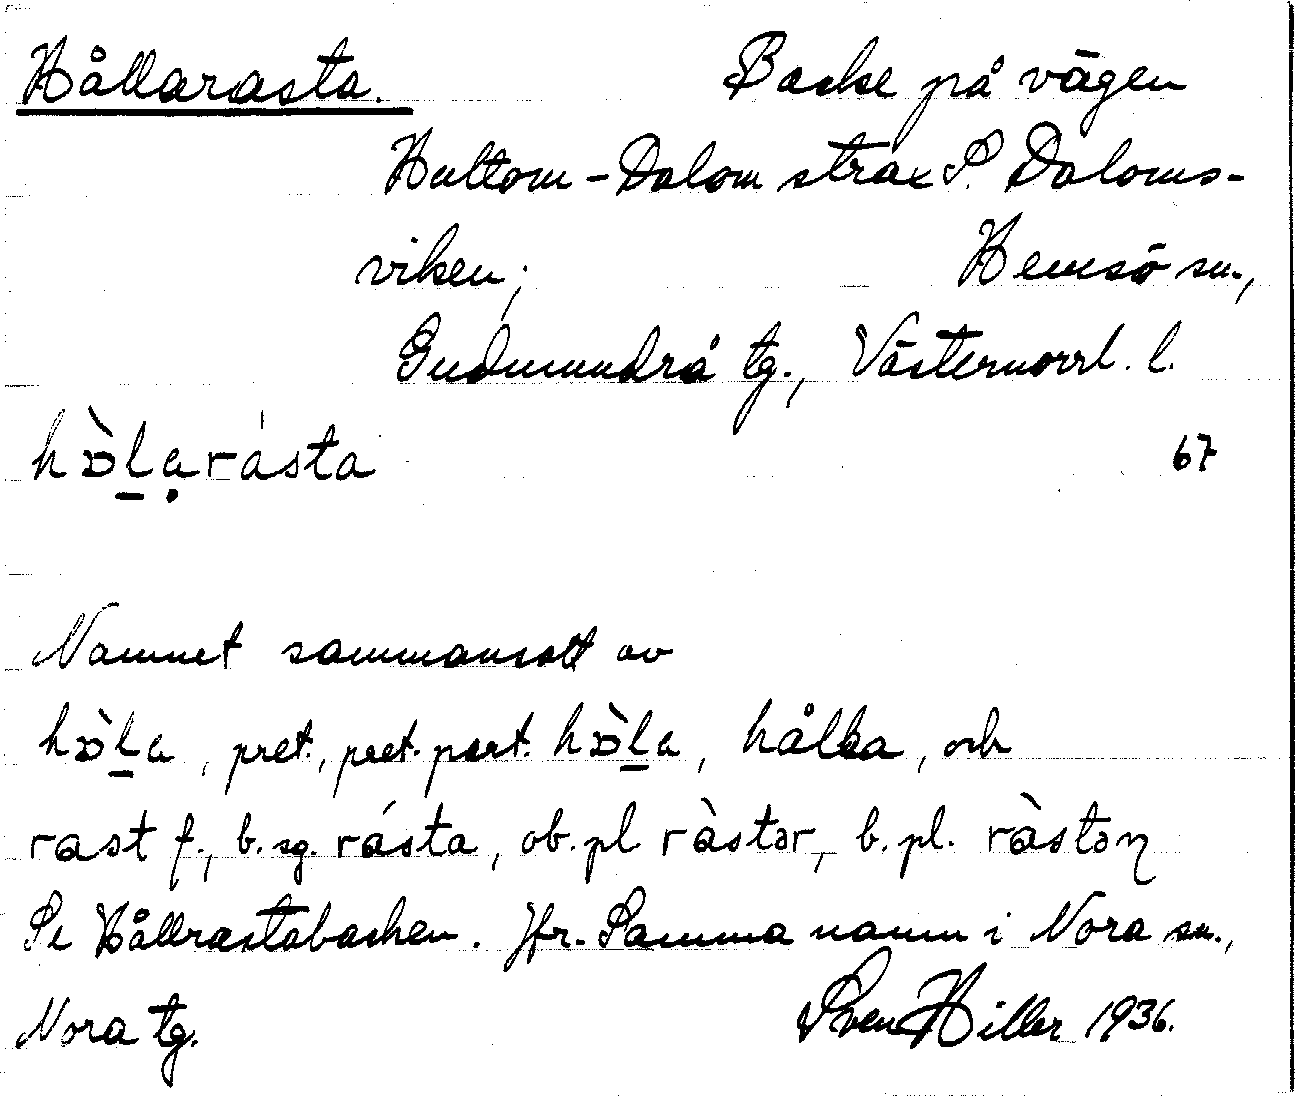 Hållarasta. Backe på vägen
Hultom-Dalom strax S. Daloms-
viken; Hemsö sn.,
Gudmundrå tg., Västernorrl. l.
hɔ̀l̠ạrásta 67
Namnet sammansatt av
hɔ̀l̠a, pret., pret. part. hɔ̀l̠a, hålla, och
rast f., b. sg. rásta, ob. pl. ràstər, b. pl. ràstəɳ
Se Hållrastabacken. Jfr. Samma namn i Nora sn.,
Nora tg. Sven Hiller 1936.